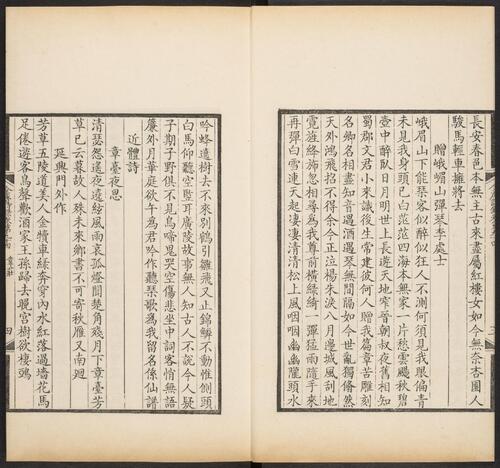 長安春邑本無主古來盡屬紅樓女如今無奈杏園人
駿馬輕車擁將去
贈峨嵋山彈琴李處士
峨眉山下能琴客似醉似狂人不測何須見我眼偏青
未見我身頭已白茫茫四海本無家一片愁雲颺秋碧
壺中醉臥日月明世上長遊天地窄晉朝叔夜舊相知
蜀郡文君小來識後生常建彼何人贈我篇章苦雕刻
名卿名相盡知音遇酒遇琴無間隔如今世亂獨翛然
天外鴻飛招不得余今正泣楊朱淚八月邊城風刮地
霓旌絳旆忽相尋為我尊前橫綠綺一彈猛雨隨手來
再彈白雪連天起凄凄清清松上風咽咽幽幽隴頭水
吟蜂遶樹去不來別鶴引雛飛又止錦鱗不動惟側頭
白馬仰聽空竪耳廣陵故事無人知古人不說今人疑
子期子野俱不見烏啼鬼哭空傷悲坐中詞客悄無語
簾外月華庭欲午為君吟作聽琴歌為我留名係仙譜
近體詩
章臺夜思
清瑟怨遙夜遶絃風雨哀孤燈聞楚角殘月下章臺芳
草已云暮故人殊未來鄉書不可寄秋雁又南迴
延興門外作
芳草五陵道美人金犢車綠奔穿內水紅落過墻花馬
足倦遊客鳥聲歡酒家王孫歸去晚宮樹欲棲鴉
四